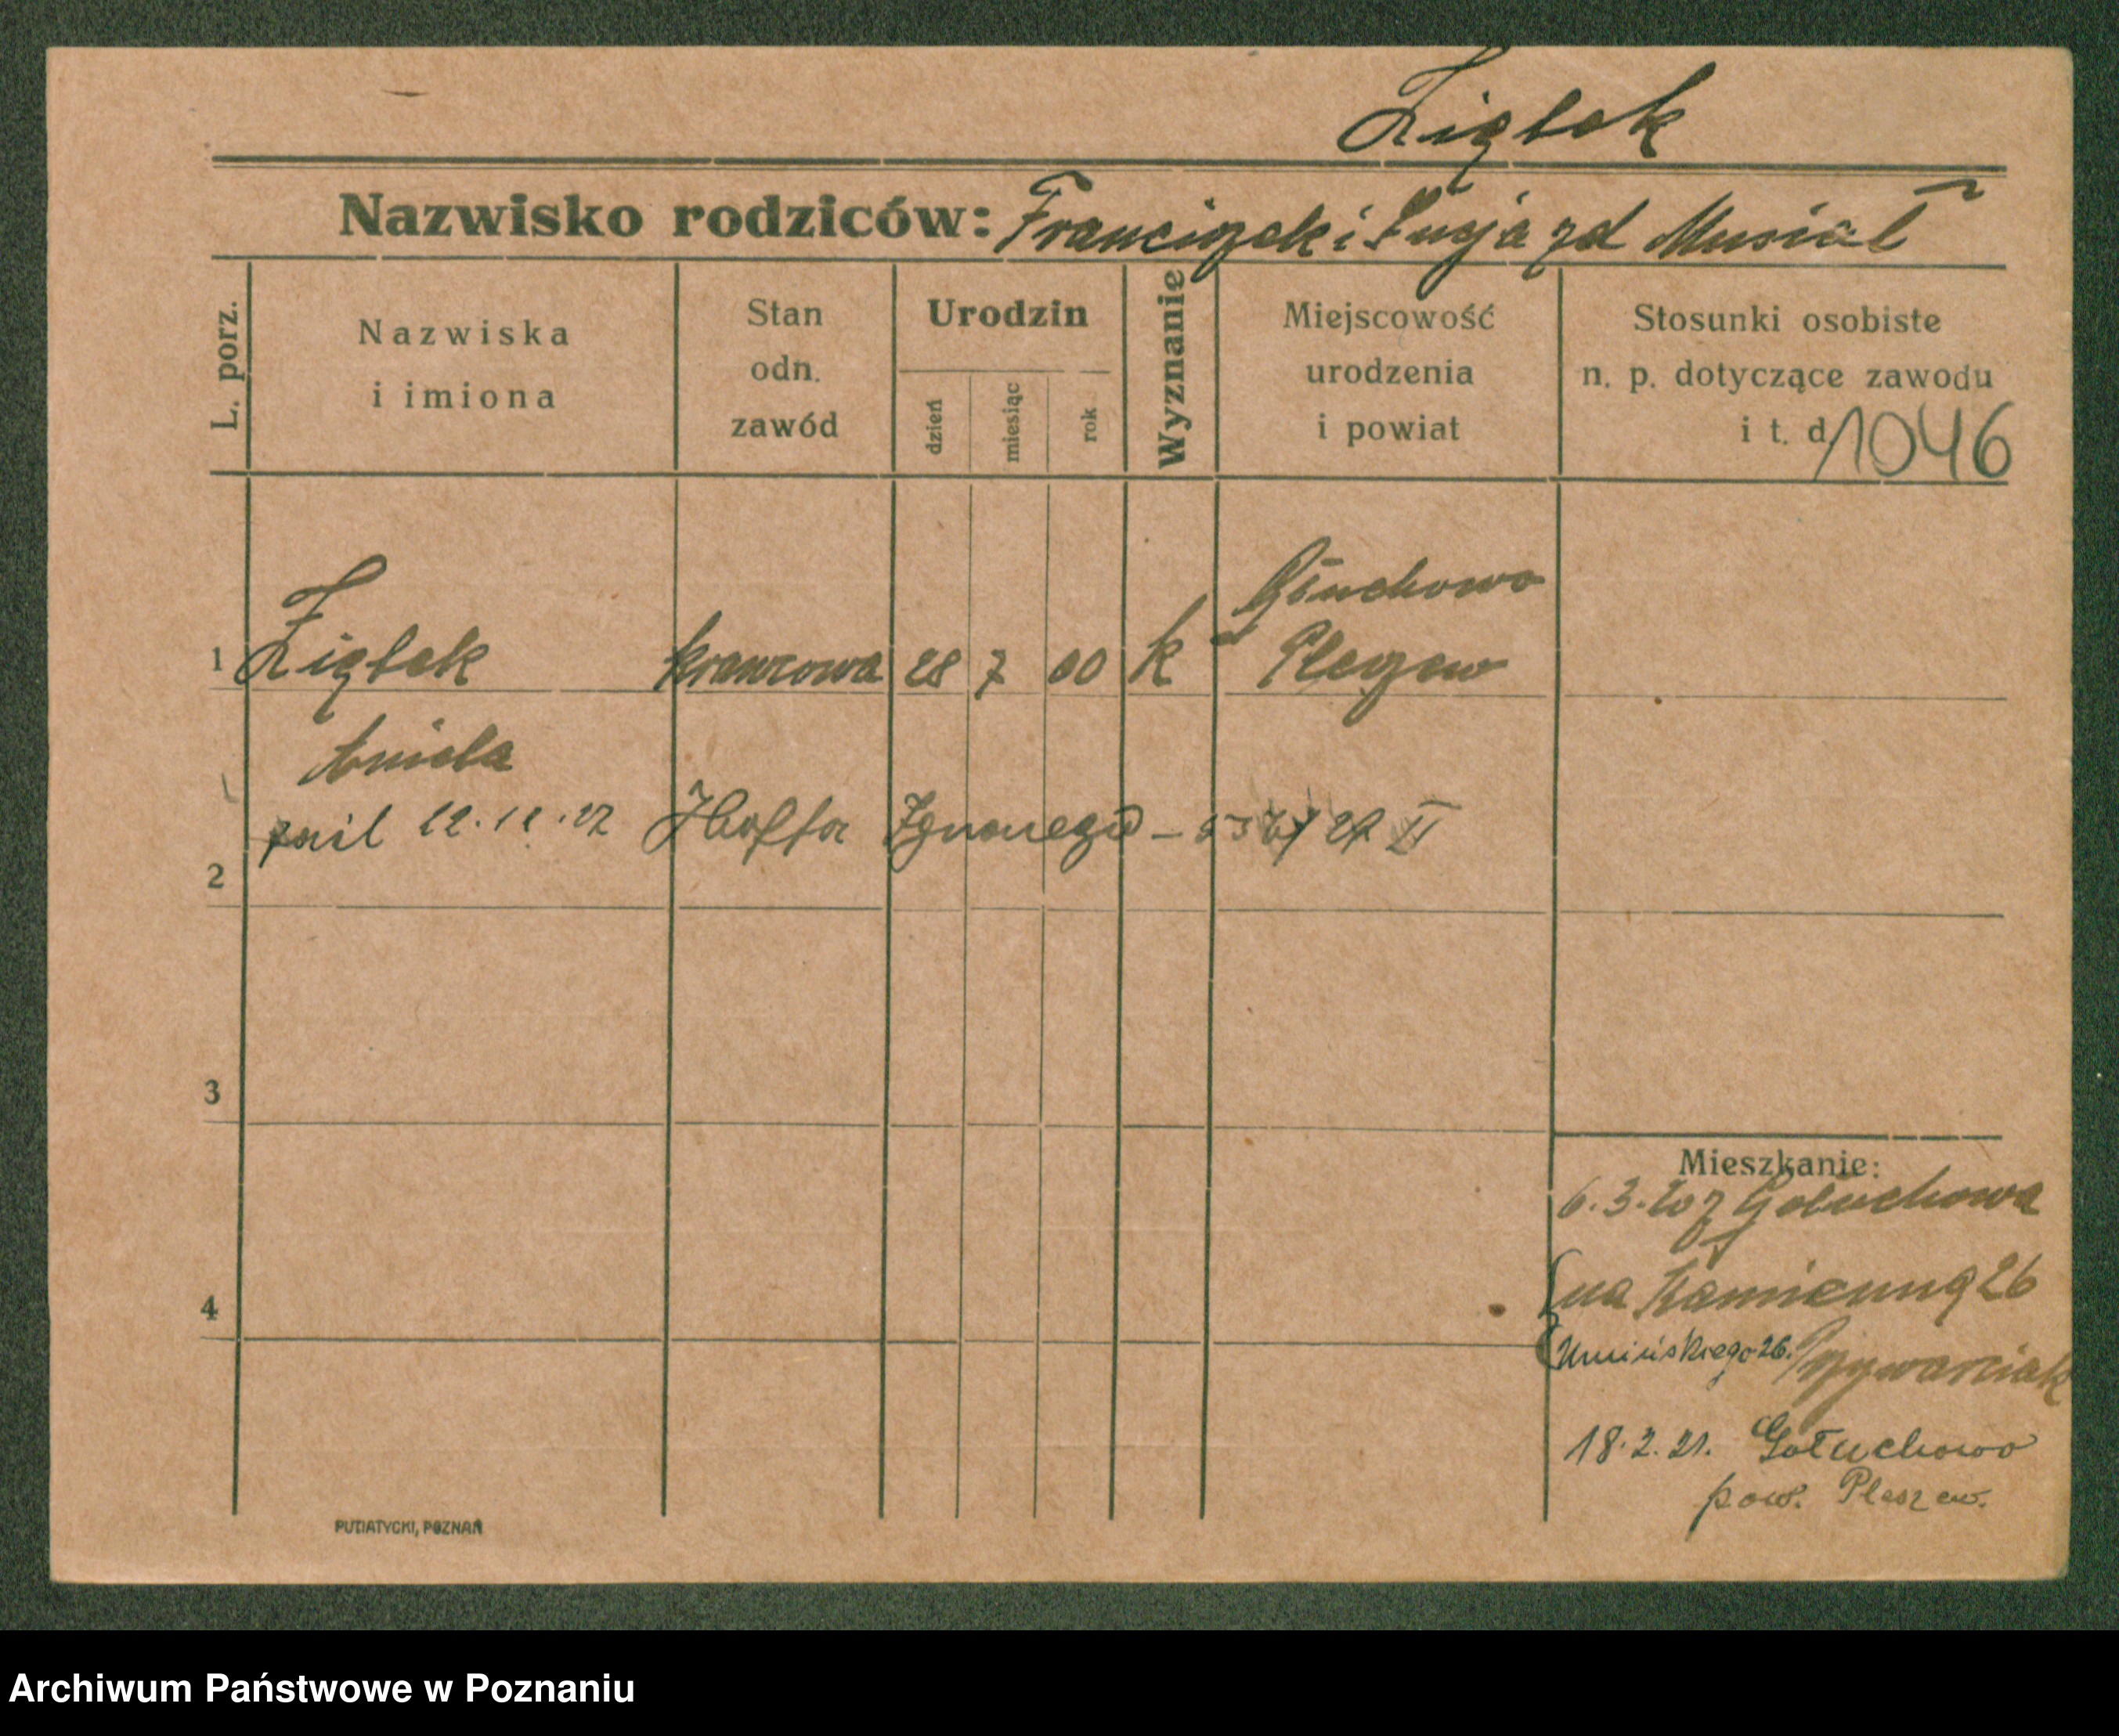 Ziętek
Nazwisko rodziców: Franciszek i Łucja zd Musiał
L. porz.
Nazwiska
i imiona
Stan
odn.
zawód
Urodzin
dzień
miesiąc
rok
Wyznanie
Miejscowość
urodzenia
i powiat
Stosunki osobiste
n. p. dotyczące zawodu
i t. d.
1046
Głuchowo
1 Ziętek krawcowa 28 7 00 k Pleszew
Aniela
Hoffa Ignacego
2
3
4
Mieszkanie:
6.3.20 z Gołuchowa
na Kamienną 26
Umińskiego 26.
18.2.21. Gołuchowo
pow. Pleszew.
PUTIATYCKI, POZNAŃ
Archiwum Państwowe w Poznaniu